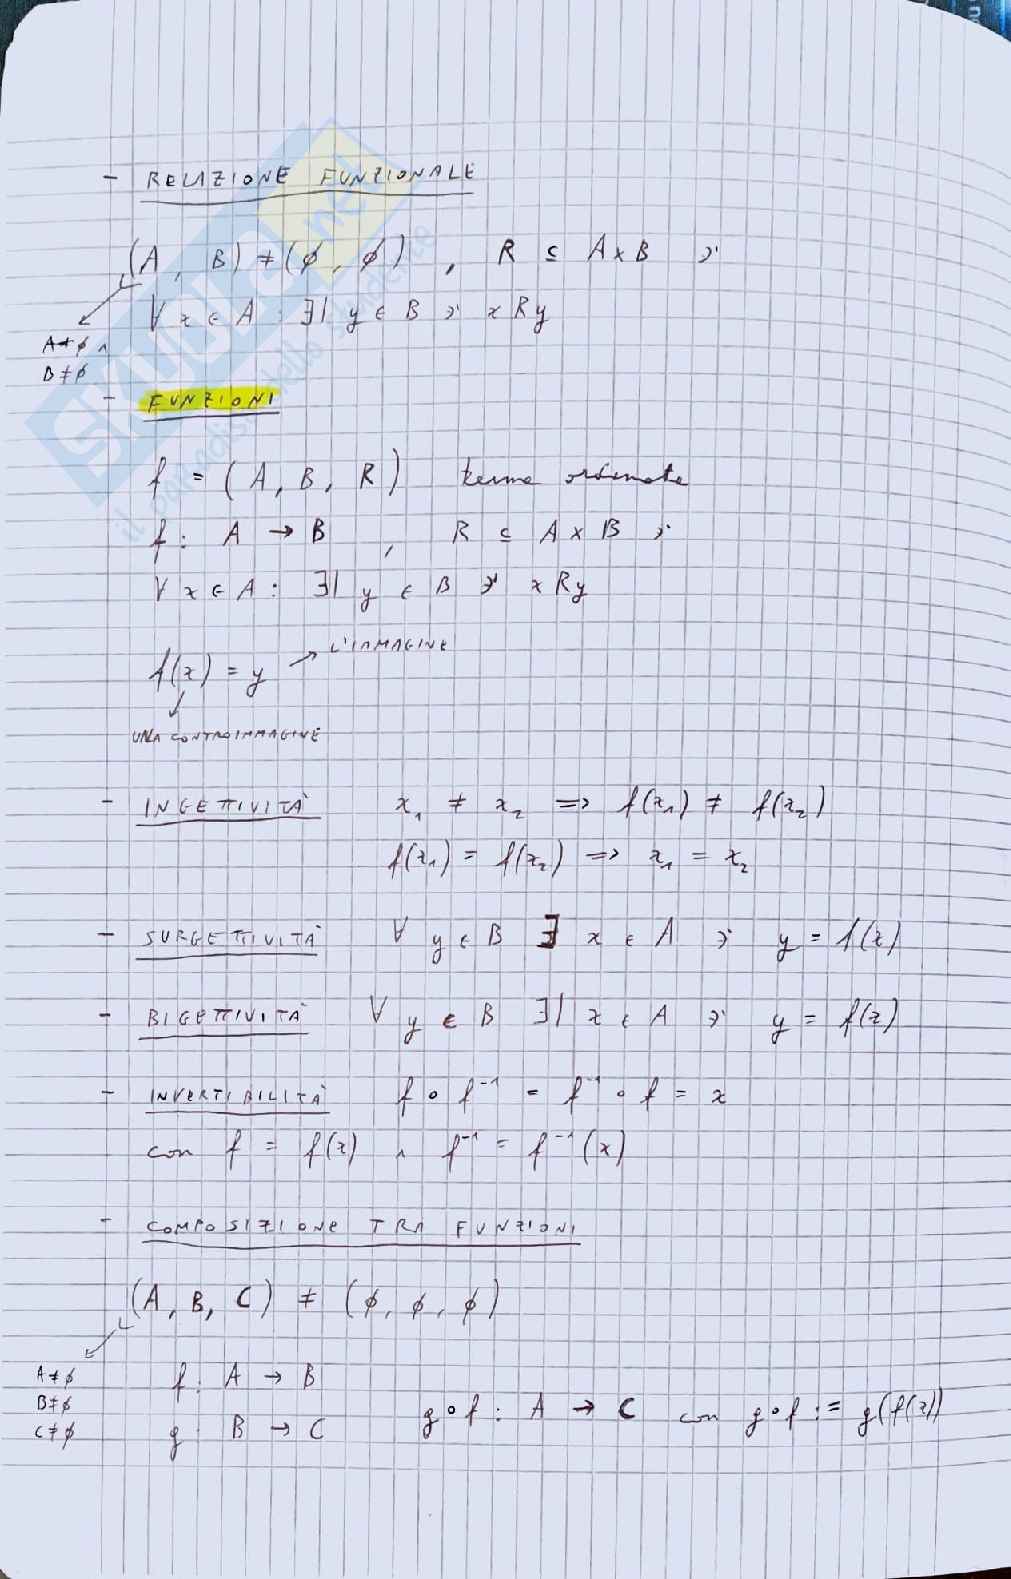 - RELAZIONE FUNZIONALE
(A, B) ≠ (∅, ∅), R ⊆ A×B ∋'
A≠∅ ∧
B≠∅
∀ x ∈ A : ∃| y ∈ B ∋' x R y
- FUNZIONI
f = (A, B, R) terna ordinata
f : A → B , R ⊆ A × B ∋'
∀ x ∈ A : ∃| y ∈ B ∋' x R y
f(x) = y → L'IMMAGINE
UNA CONTROIMMAGINE
- INGETTIVITÀ x₁ ≠ x₂ => f(x₁) ≠ f(x₂)
f(x₁) = f(x₂) => x₁ = x₂
- SURGETTIVITÀ ∀ y ∈ B ∃ x ∈ A ∋' y = f(x)
- BIGETTIVITÀ ∀ y ∈ B ∃| x ∈ A ∋' y = f(x)
- INVERTIBILITÀ f ∘ f⁻¹ = f⁻¹ ∘ f = x
con f = f(x) ∧ f⁻¹ = f⁻¹(x)
- COMPOSIZIONE TRA FUNZIONI
(A, B, C) ≠ (∅, ∅, ∅)
A≠∅
B≠∅
C≠∅
f : A → B
g : B → C
g∘f : A → C con g∘f := g(f(x))
SKUOLA.net
il paradiso dello studente